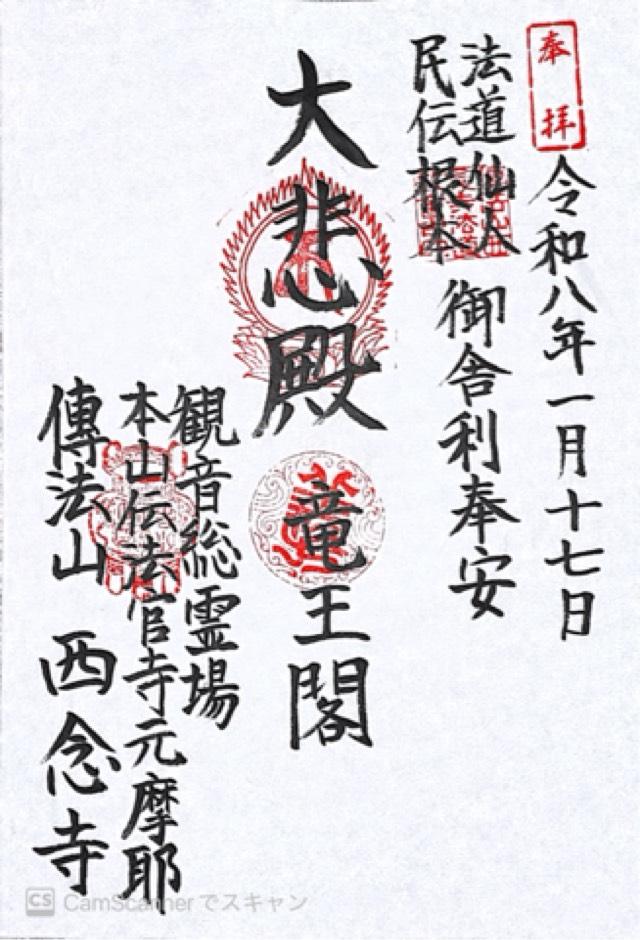 奉拝
令和八年一月十七日
法道仙人
民伝根本
御舎利奉安
大悲殿
竜王閣
観音総霊場
本山伝法官寺元摩耶
傳法山 西念寺
CS CamScannerでスキャン